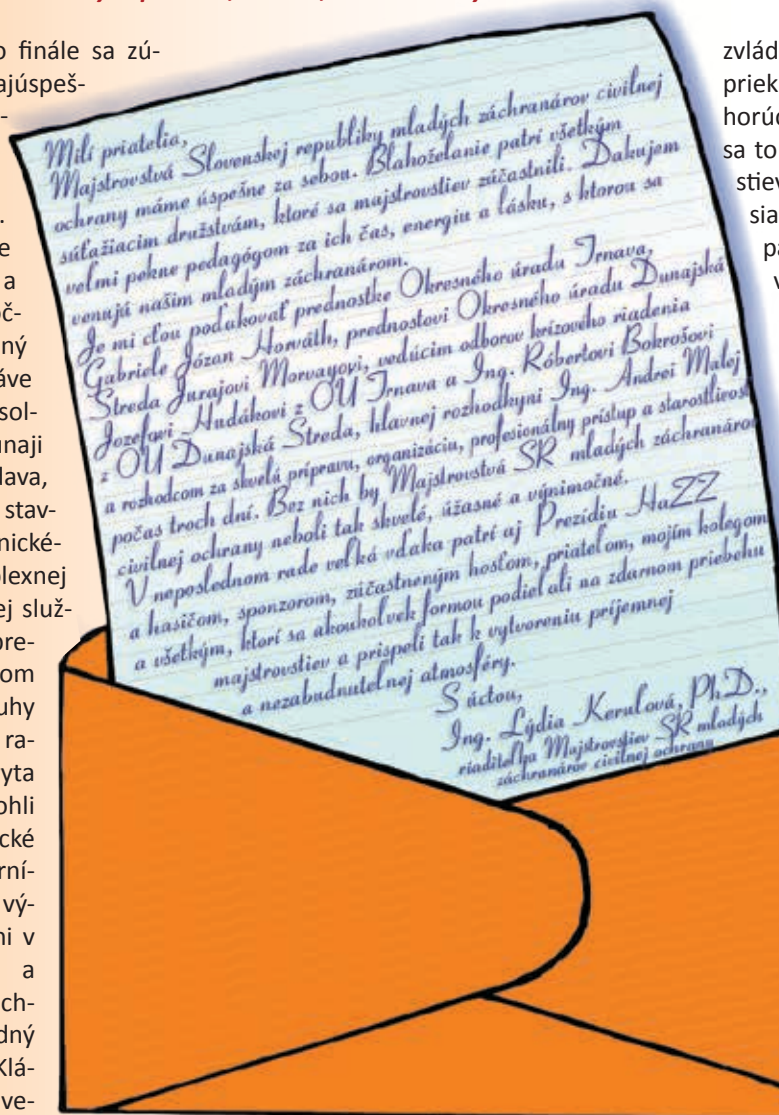 finále sa zú-
ajúspeš-
-
.
e
a
oč-
ný
áve
sol-
unaji
lava,
stav-
nické-
plexnej
ej služ-
pre-
om
uhy
ra-
yta
ohli
cké
rní-
vý-
ni v
a
ch-
dný
Klá-
ve-
Milí priatelia,
Majstrovstvá Slovenskej republiky mladých záchranárov civilnej
ochrany máme úspešne za sebou. Blahoželanie patrí všetkým
súťažiacim družstvám, ktoré sa majstrovstiev zúčastnili. Ďakujem
veľmi pekne pedagógom za ich čas, energiu a lásku, s ktorou sa
venujú našim mladým záchranárom.
Je mi cťou poďakovať prednostke Okresného úradu Trnava,
Gabriele Józan Horváth, prednostovi Okresného úradu Dunajská
Streda Jurajovi Morvayovi, vedúcim odborov krízového riadenia
Jozefovi Hudákovi z OÚ Trnava a Ing. Róbertovi Bokrošovi
z OÚ Dunajská Streda, hlavnej rozhodkyni Ing. Andrei Malej
a rozhodcom za skvelú prípravu, organizáciu, profesionálny prístup a starostlivosť
počas troch dní. Bez nich by Majstrovstvá SR mladých záchranárov
civilnej ochrany neboli tak skvelé, úžasné a výnimočné.
V neposlednom rade veľká vďaka patrí aj Prezídiu HaZZ
a hasičom, sponzorom, zúčastneným hosťom, priateľom, mojím kolegom
a všetkým, ktorí sa akoukoľvek formou podieľali na zdarnom priebehu
majstrovstiev a prispeli tak k vytvoreniu príjemnej
a nezabudnuteľnej atmosféry.
S úctou,
Ing. Lýdia Kerulová, PhD.,
riaditeľka Majstrovstiev SR mladých
záchranárov civilnej ochrany
zvlád
priek
horúc
sa to
stiev
sia
pa
v